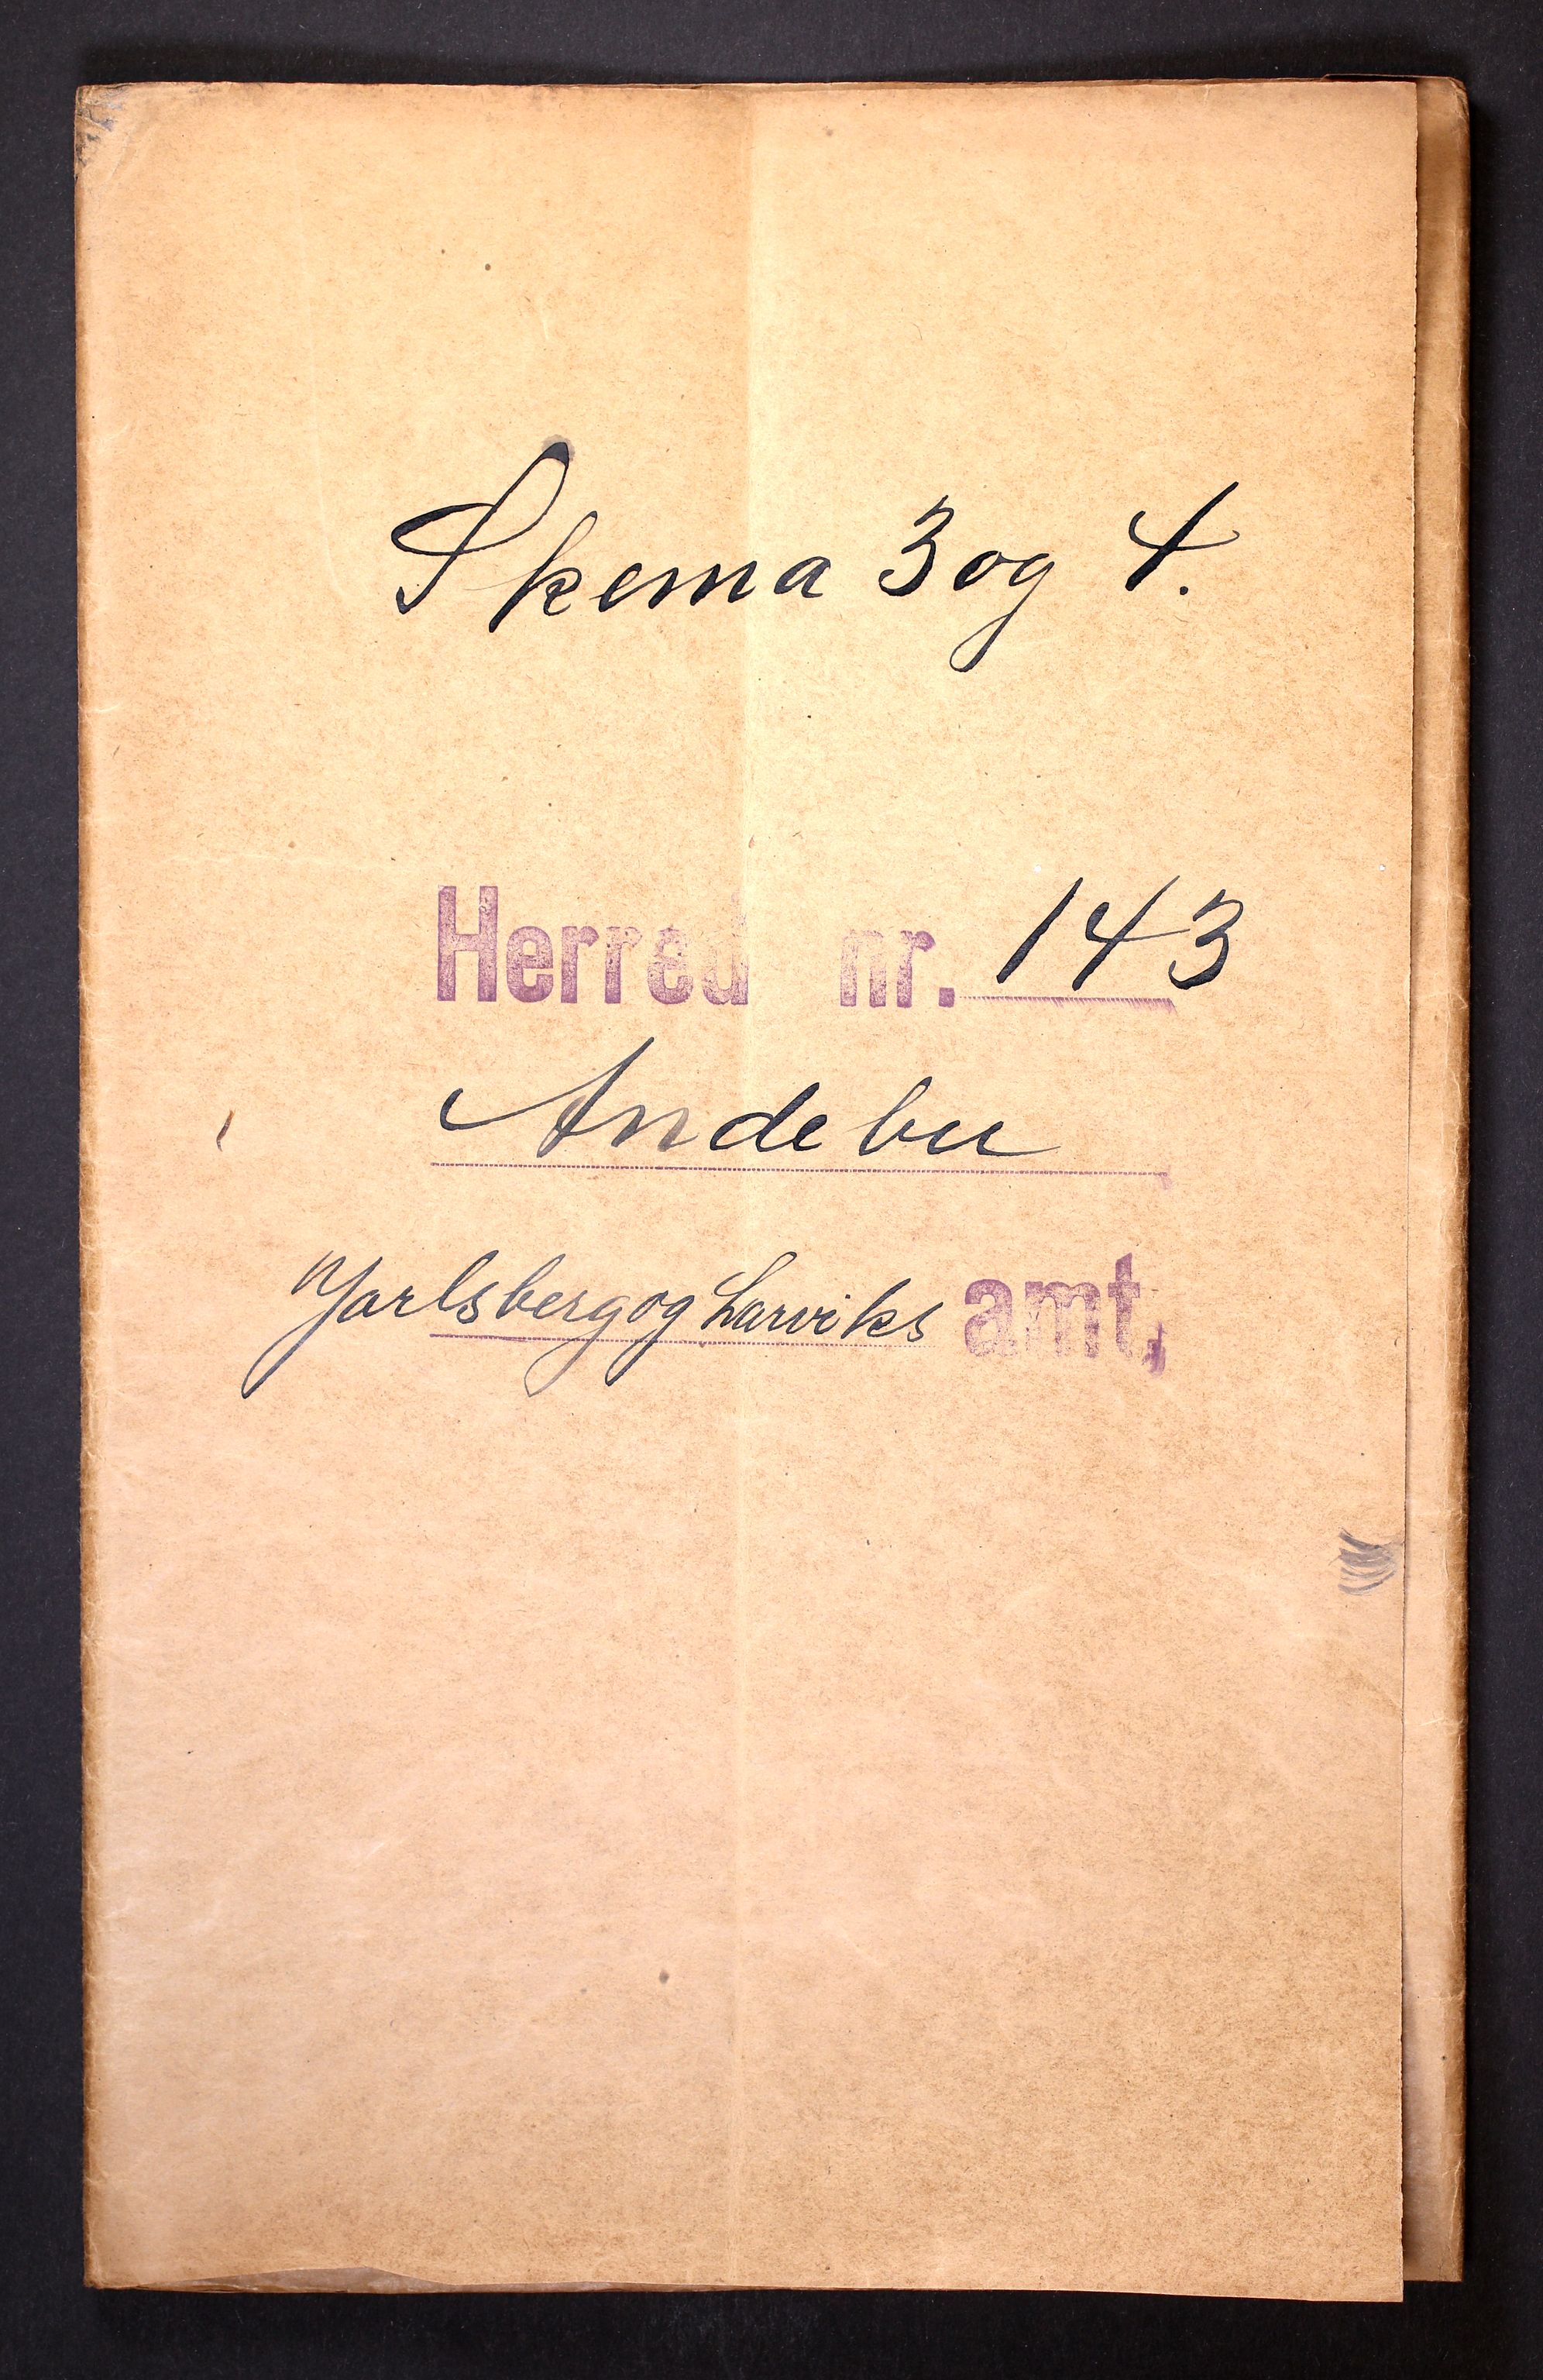 Skema 3 og 4.
Herred nr. 143
Andebu
Jarlsberg og Larviks amt,